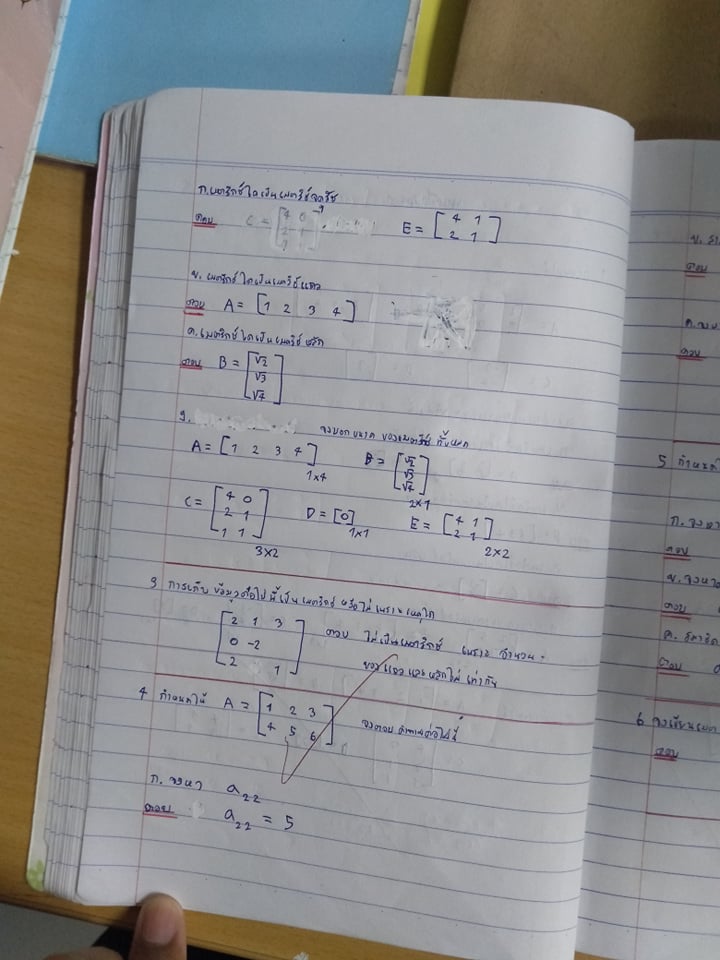 ก. เมตริกซ์ใดเป็นเมตริซ์จตุรัส
ตอบ E = [4 1
2 1]
ข. เมตริกซ์ใดเป็นเมตริซ์แถว
ตอบ A = [1 2 3 4]
ค. เมตริกซ์ใดเป็นเมตริซ์หลัก
ตอบ B = [√2
√3
√7]
จงบอกขนาดของเมตริซ์ทั้งหมด
A = [1 2 3 4] 1×4 B = [√2
√3
√7] 2×1
C = [4 0
2 1
1 1] 3×2 D = [0] 1×1 E = [4 1
2 1] 2×2
3 การเก็บข้อมูลต่อไปนี้เป็นเมตริกซ์ หรือไม่เพราะเหตุใด
[2 1 3
0 -2
2 1] ตอบ ไม่เป็นเมตริกซ์ เพราะ จำนวน -
ของแถวและหลักไม่เท่ากัน
4 กำหนดให้ A = [1 2 3
4 5 6] จงตอบคำถามต่อไปนี้
ก. จงหา a₂₂
ตอบ a₂₂ = 5
ตอบ
ตอบ
5 กำหนด
ก. จงหา
ตอบ
ข. จงหา
ตอบ
6 จงเขียนเมต
ตอบ